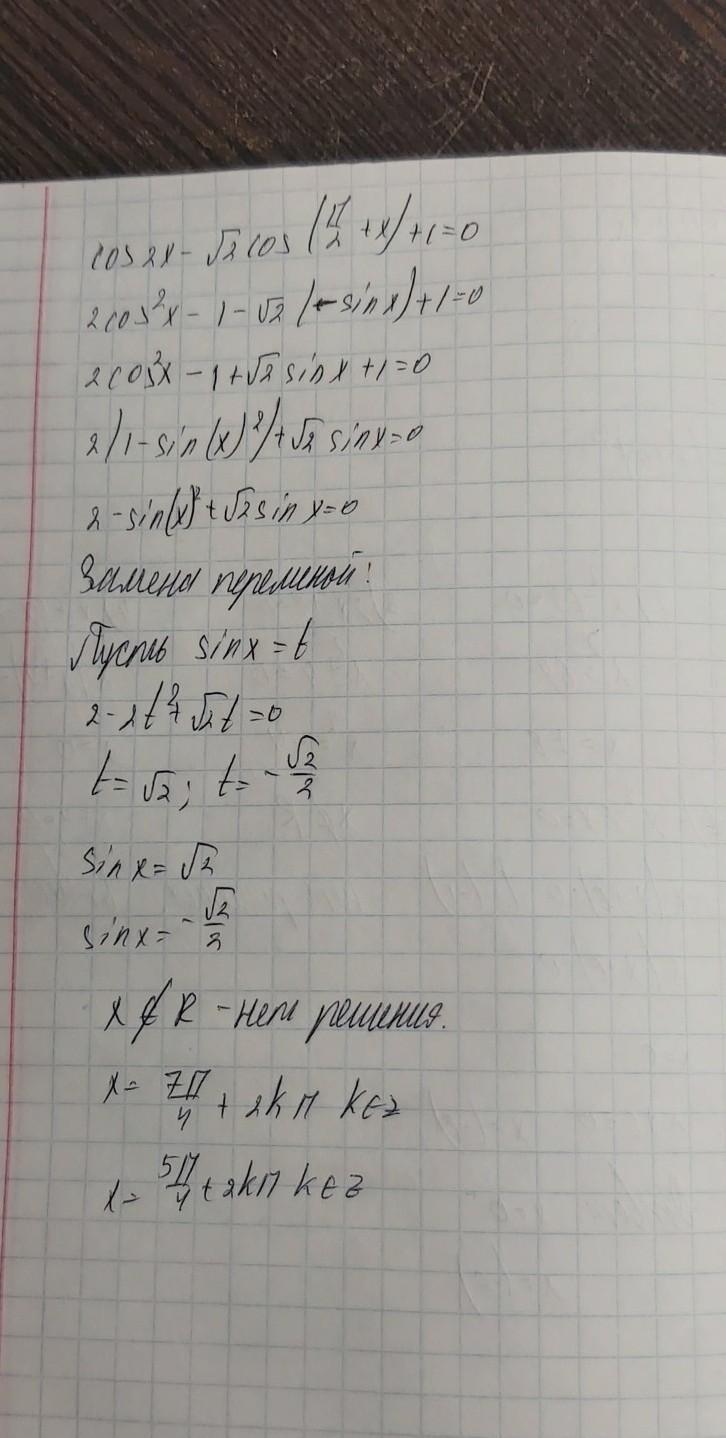 cos 2x - √2 cos (π/2 + x) + 1 = 0
2cos²x - 1 - √2 (- sin x) + 1 = 0
2cos²x - 1 + √2 sin x + 1 = 0
2(1 - sin(x)²) + √2 sin x = 0
2 - sin(x)² + √2 sin x = 0
Замена переменой:
Пусть sin x = t
2 - 2t² + √2 t = 0
t = √2; t = -√2/2
sin x = √2
sin x = -√2/2
x ∉ R - нет решения.
x = 7π/4 + 2kπ k ∈ z
x = 5π/4 + 2kπ k ∈ z